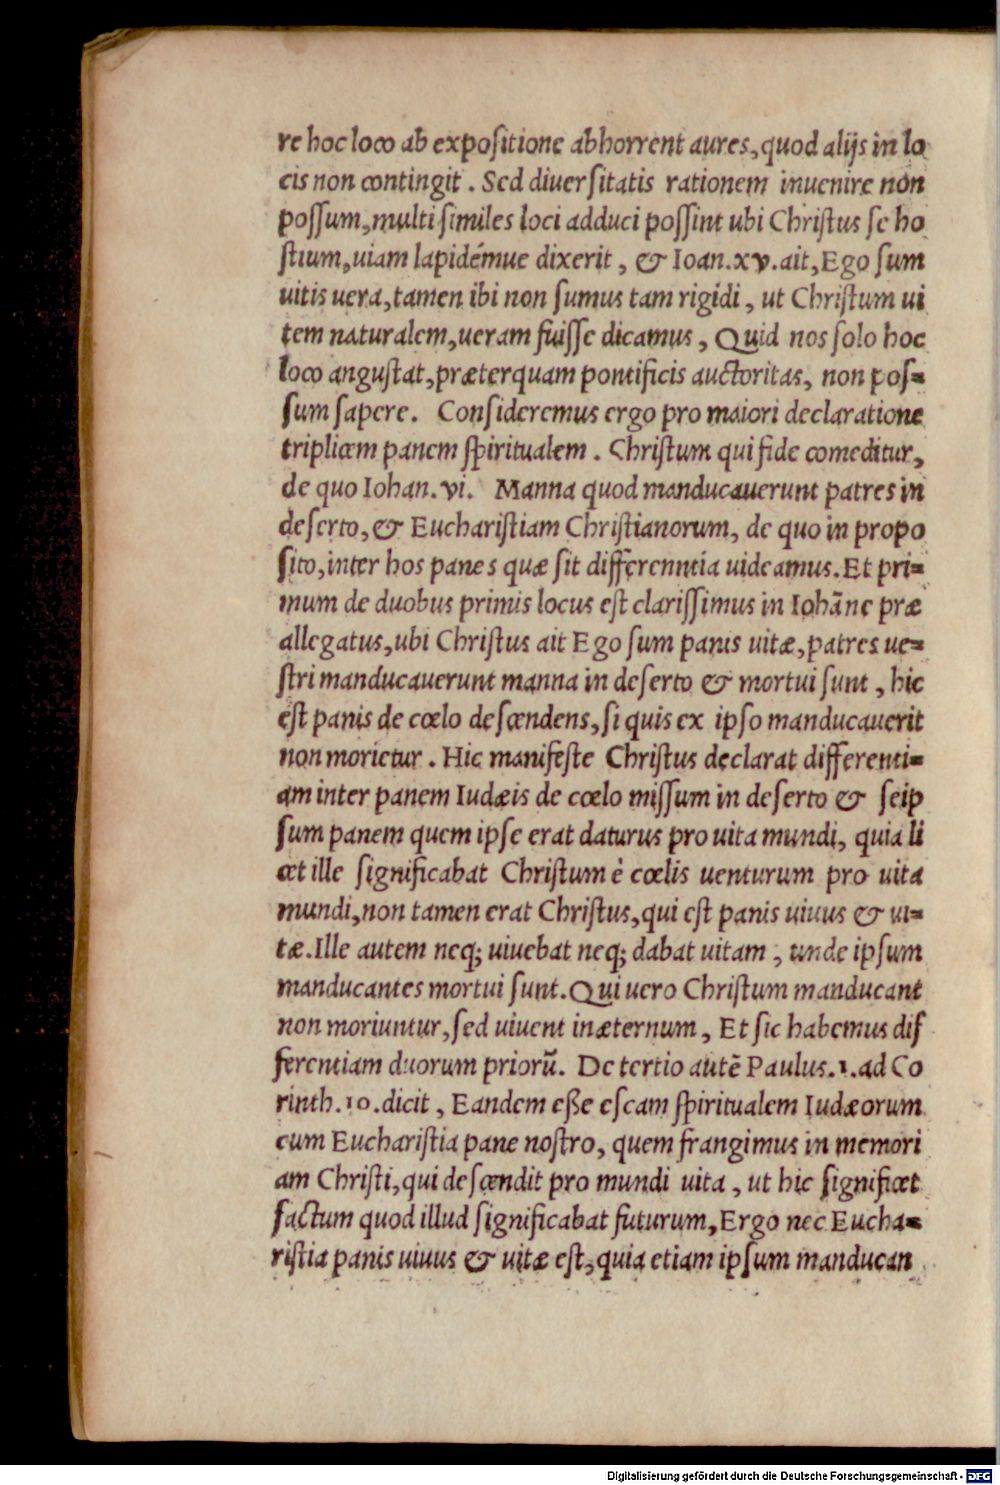 re hoc loco ab expoſitione abhorrent aures, quod alijs in lo
cis non contingit. Sed diuerſitatis rationem inuenire non
poſſum, multi ſimiles loci adduci poſſint ubi Chriſtus ſe ho
ſtium, uiam lapidémue dixerit, & Ioan. xv. ait, Ego ſum
uitis uera, tamen ibi non ſumus tam rigidi, ut Chriſtum ui
tem naturalem, ueram fuiſſe dicamus, Quid nos ſolo hoc
loco anguſtat, præterquam pontificis auctoritas, non poſ=
ſum ſapere. Conſideremus ergo pro maiori declaratione
triplicem panem ſpiritualem. Chriſtum qui fide comeditur,
de quo Iohan. vi. Manna quod manducauerunt patres in
deſerto, & Euchariſtiam Chriſtianorum, de quo in propo
ſito, inter hos panes quæ ſit differenntia uideamus. Et pri=
mum de duobus primis locus eſt clariſſimus in Iohāne præ
allegatus, ubi Chriſtus ait Ego ſum panis uitæ, patres ue=
ſtri manducauerunt manna in deſerto & mortui ſunt, hic
eſt panis de cœlo deſcendens, ſi quis ex ipſo manducauerit
non morietur. Hic manifeſte Chriſtus declarat differenti=
am inter panem Iudæis de cœlo miſſum in deſerto & ſeip
ſum panem quem ipſe erat daturus pro uita mundi, quia li
cet ille ſignificabat Chriſtum è cœlis uenturum pro uita
mundi, non tamen erat Chriſtus, qui eſt panis uiuus & ui=
tæ. Ille autem neq; uiuebat neq; dabat uitam, unde ipſum
manducantes mortui ſunt. Qui uero Chriſtum manducant
non moriuntur, ſed uiuent inæternum, Et ſic habemus dif
ferentiam duorum priorū. De tertio autē Paulus. 1. ad Co
rinth. 10. dicit, Eandem eße eſcam ſpiritualem Iudæorum
cum Euchariſtia pane noſtro, quem frangimus in memori
am Chriſti, qui deſcendit pro mundi uita, ut hic ſignificet
factum quod illud ſignificabat futurum, Ergo nec Eucha=
riſtia panis uiuus & uitæ eſt, quia etiam ipſum manducan
Digitalisierung gefördert durch die Deutsche Forschungsgemeinschaft - DFG